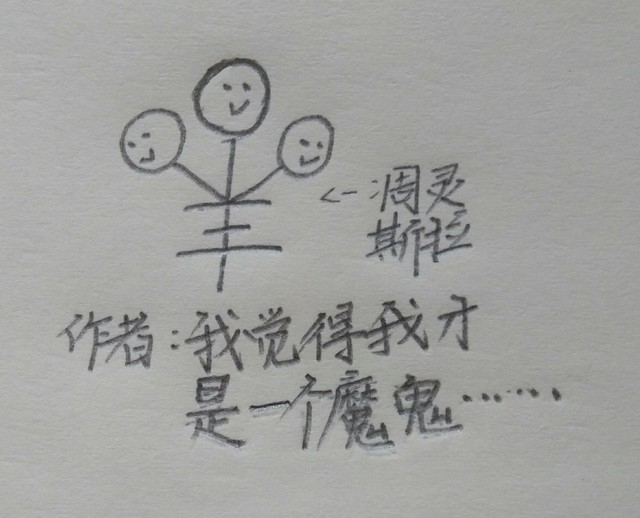 凋灵
斯拉
作者:我觉得我才
是一个魔鬼……